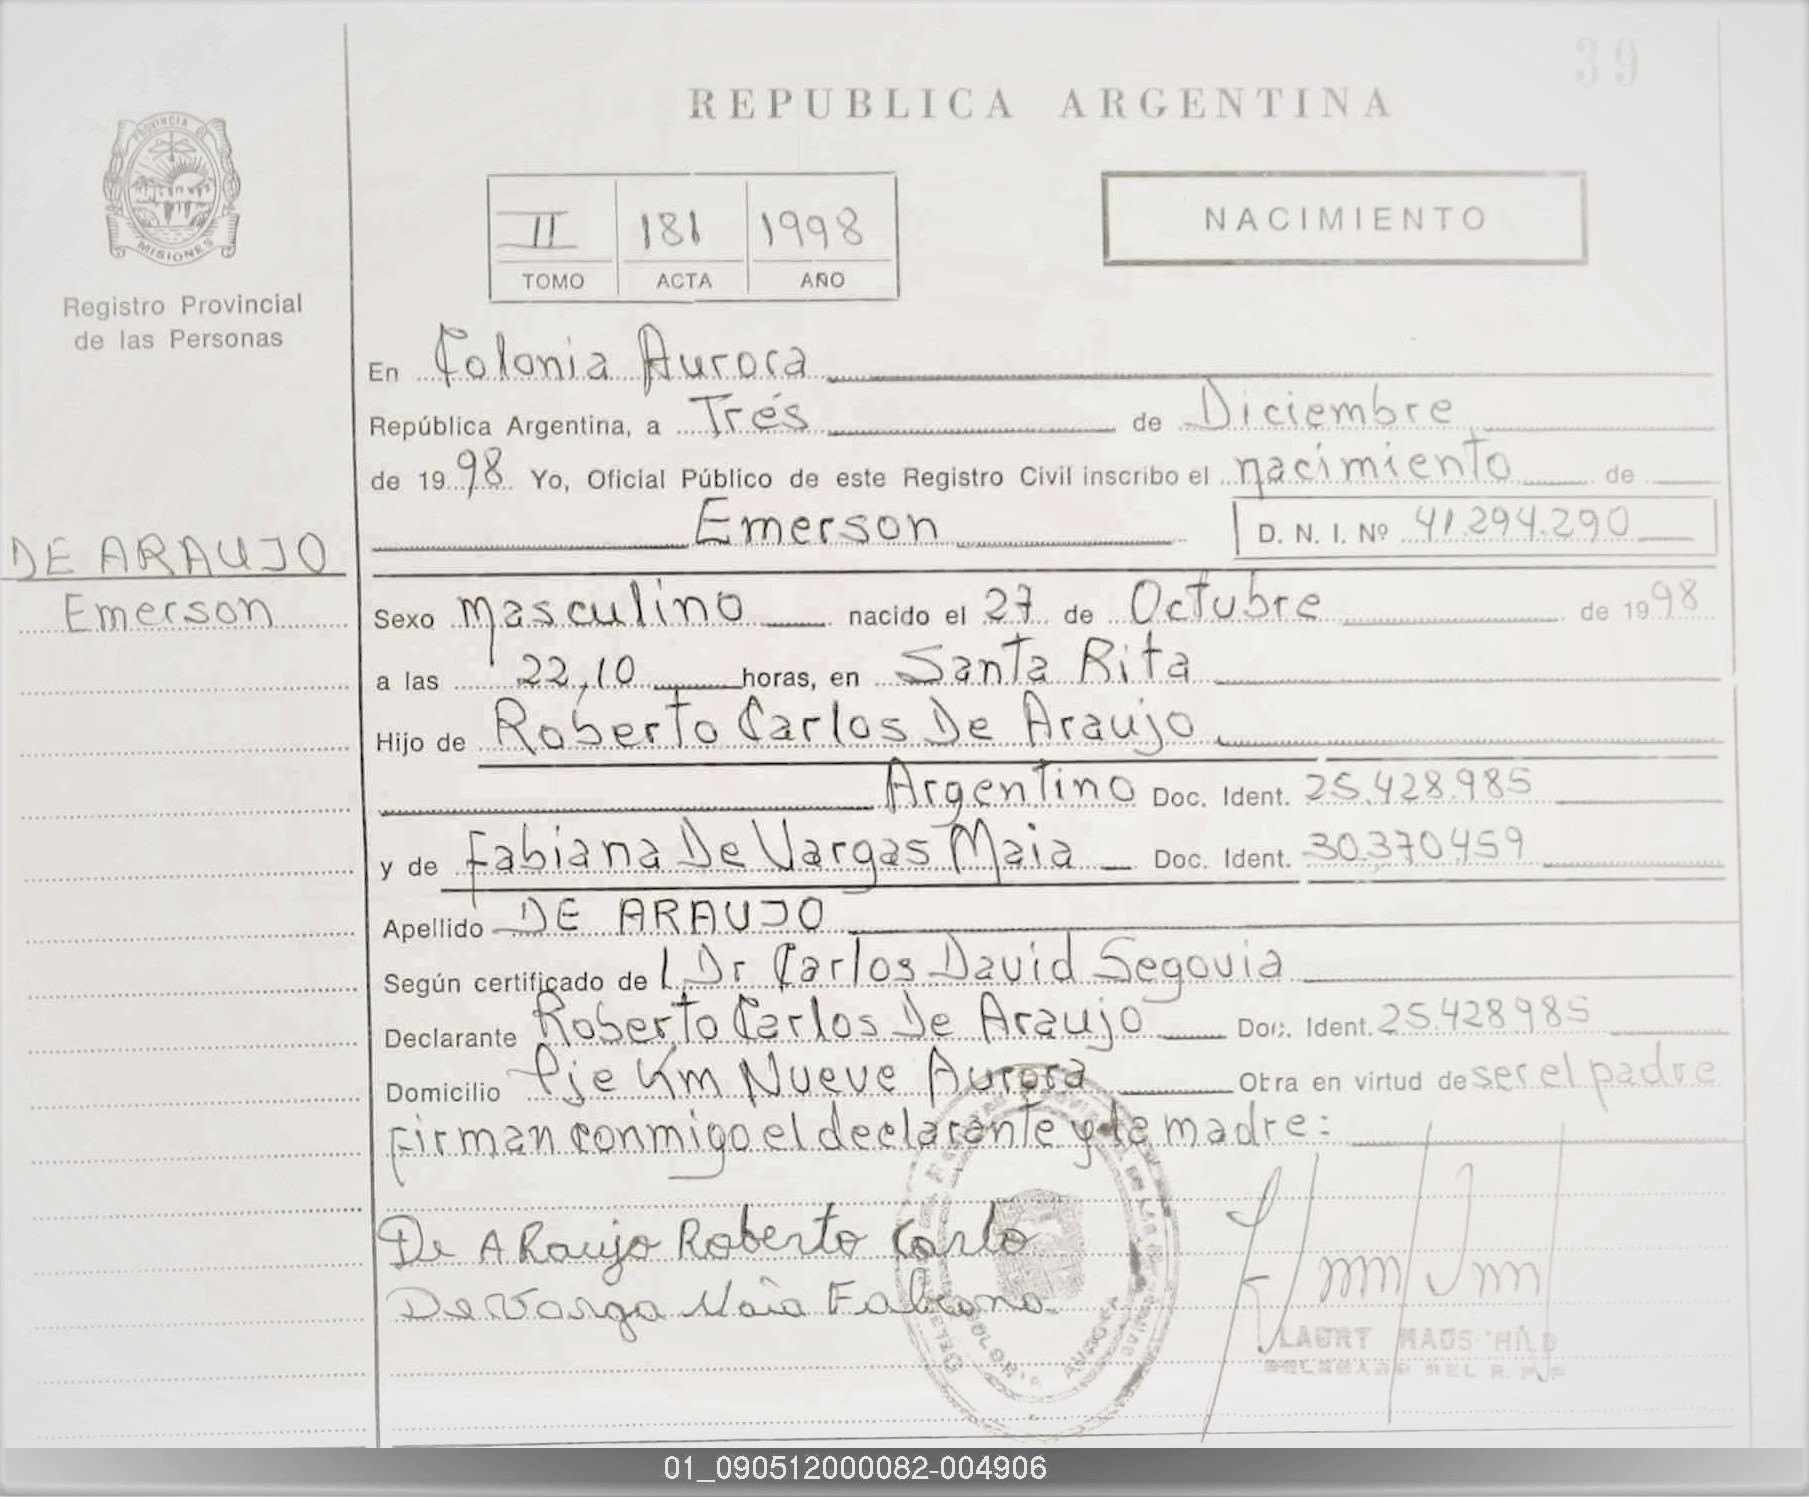 39
REPUBLICA ARGENTINA
PROVINCIA D
MISIONES
Registro Provincial
de las Personas
II 181 1998
TOMO ACTA AÑO
NACIMIENTO
En Colonia Aurora
República Argentina, a Trés de Diciembre
de 1998 Yo, Oficial Público de este Registro Civil inscribo el nacimiento de
Emerson D. N. I. Nº 41.294.290
DE ARAUJO
Emerson
Sexo masculino nacido el 27 de Octubre de 1998
a las 22,10 horas, en Santa Rita
Hijo de Roberto Carlos De Araujo
Argentino Doc. Ident. 25.428.985
y de Fabiana De Vargas Maia Doc. Ident. 30.370.459
Apellido DE ARAUJO
Según certificado de l Dr Carlos David Segovia
Declarante Roberto Carlos De Araujo Doc. Ident. 25.428985
Domicilio Pje Km Nueve Aurora Otra en virtud de ser el padre
Firman conmigo el declarante y la madre:
De ARaujo Roberto Carlo
De Varga Maia Fabiana
LAURY HAUS HILD
DELEGADO DEL R. P. P
01_090512000082-004906